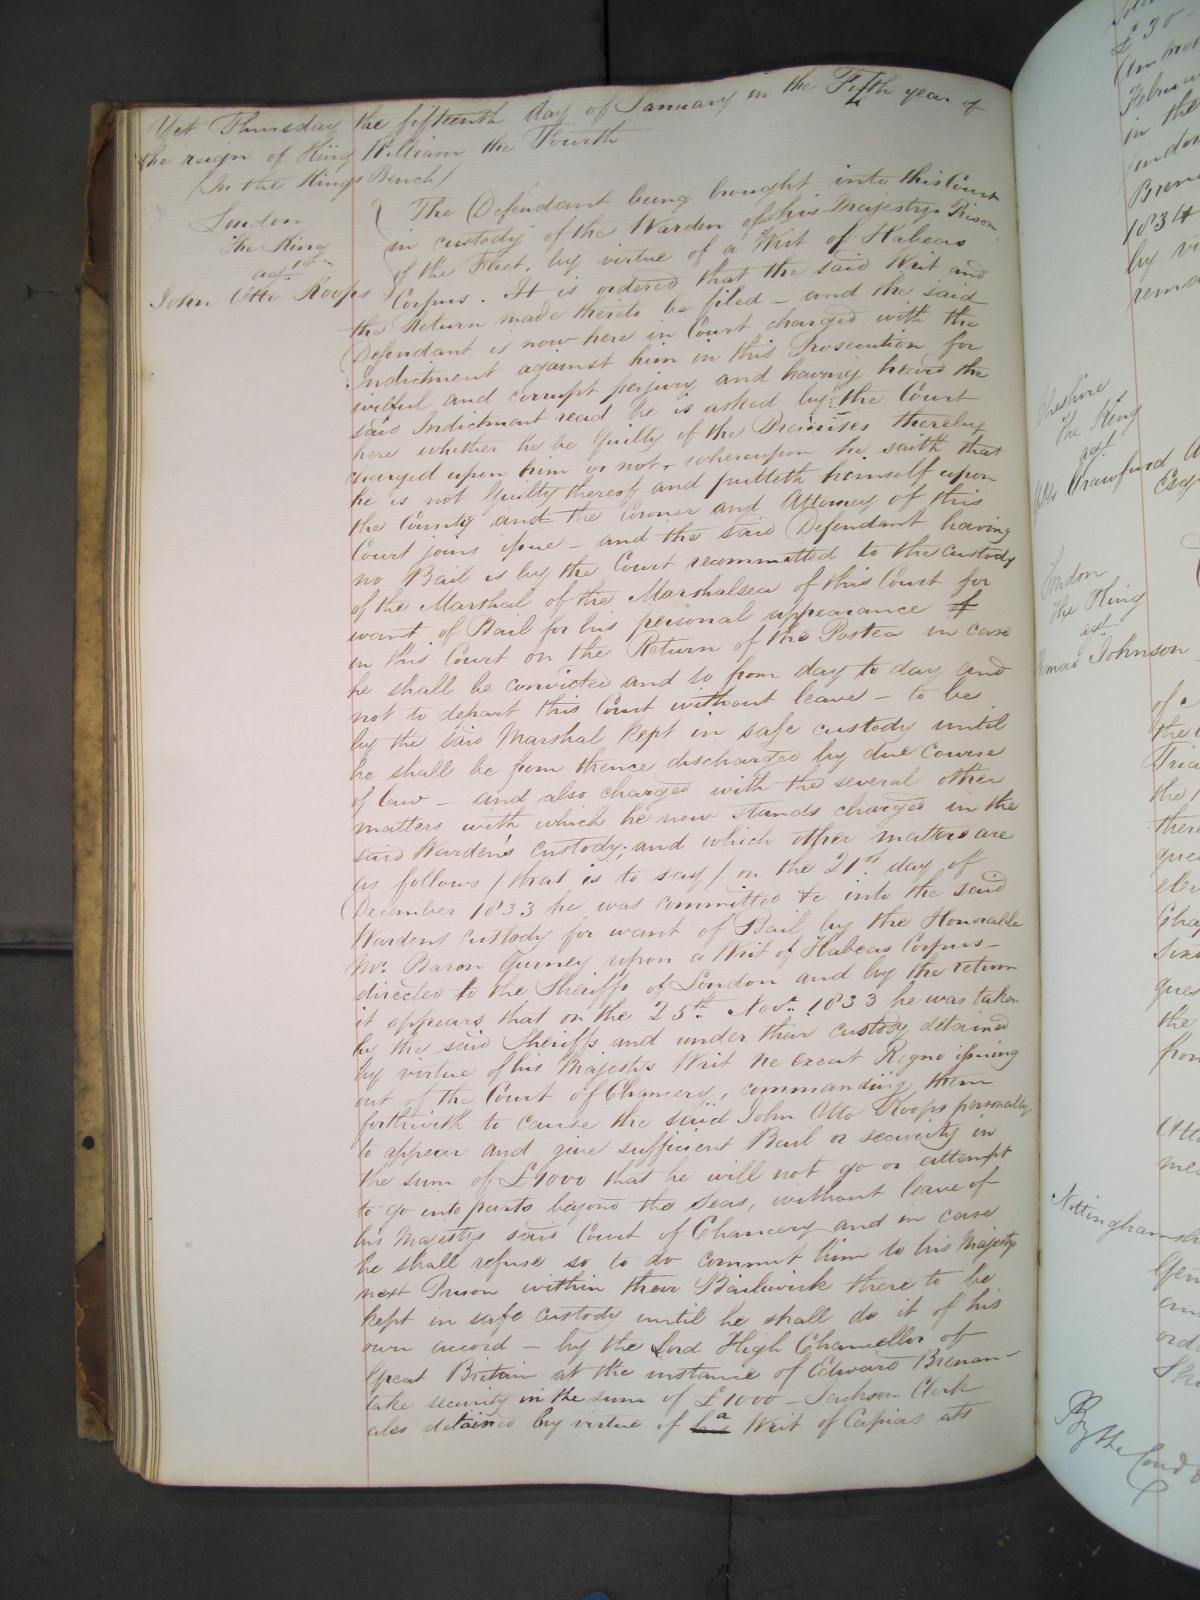 Yet Thursday the fifteenth day of January in the Fifth year of
the reign of King William the Fourth
/In the Kings Bench/
London
The King
agst
John Otto Koops
The Defendant being brought into this Court
in custody of the Warden of his Majestys Prison
of the Fleet. by virtue of a Writ of Habeas
Corpus. It is ordered that the said Writ and
the Return made thereto be filed – and the said
Defendant is now here in Court charged with the
Indictment against him in this Prosecution for
wilful and corrupt perjury and having heard the
said Indictment read he is asked by the Court
here whether he be Guilty of the Premises thereby
charged upon him or not – whereupon he saith that
he is not Guilty thereof and putteth himself upon
the County and the Coroner and Attorney of this
Court joins issue – and the said Defendant having
no Bail is by the Court recommitted to the custody
of the Marshal of the Marshalsea of this Court for
want of Bail for his personal appearance
in this Court on the Return of the Postea in case
he shall be convicted and so from day to day and
not to depart this Court without leave – to be
by the said Marshal kept in safe custody until
he shall be from thence discharged by due course
of law – and also charged with the several other
matters with which he now stands charged in the
said Warden's custody, and which other matters are
as follows /that is to say/ on the 21st day of
December 1833 he was committed to into the said
Wardens custody for want of Bail by the Honorable
Mr. Baron Gurney upon a Writ of Habeas Corpus –
directed to the Sheriffs of London and by the return
it appears that on the 25th Novr. 1833 he was taken
by the said Sheriffs and under their custody detained
by virtue of his Majestys Writ Ne exeat Regno issuing
out of the Court of Chancery, commanding them
forthwith to cause the said John Otto Koops personally
to appear and give sufficient Bail or security in
the sum of £1000 that he will not go or attempt
to go into parts beyond the Seas, without leave of
his Majestys said Court of Chancery and in case
he shall refuse so to do commit him to his Majestys
next Prison within their Bailiwick there to be
kept in safe custody until he shall do it of his
own accord – by the Lord High Chancellor of
Great Britain at the instance of Edward Brenan –
take security in the sum of £1000 – Jackson Clerk
also detained by virtue of a Writ of Capias ats
£30
Februa
in the
London
Brena
1834
by vi
rema
Cheshire
The King
agt
Crawford
Esq
London
The King
agt
Thomas Johnson
of
the
Tria
the
there
ques
elev
Chap
ques
the
from
Otto
Nottinghamsh
Gen
ord
By the Court